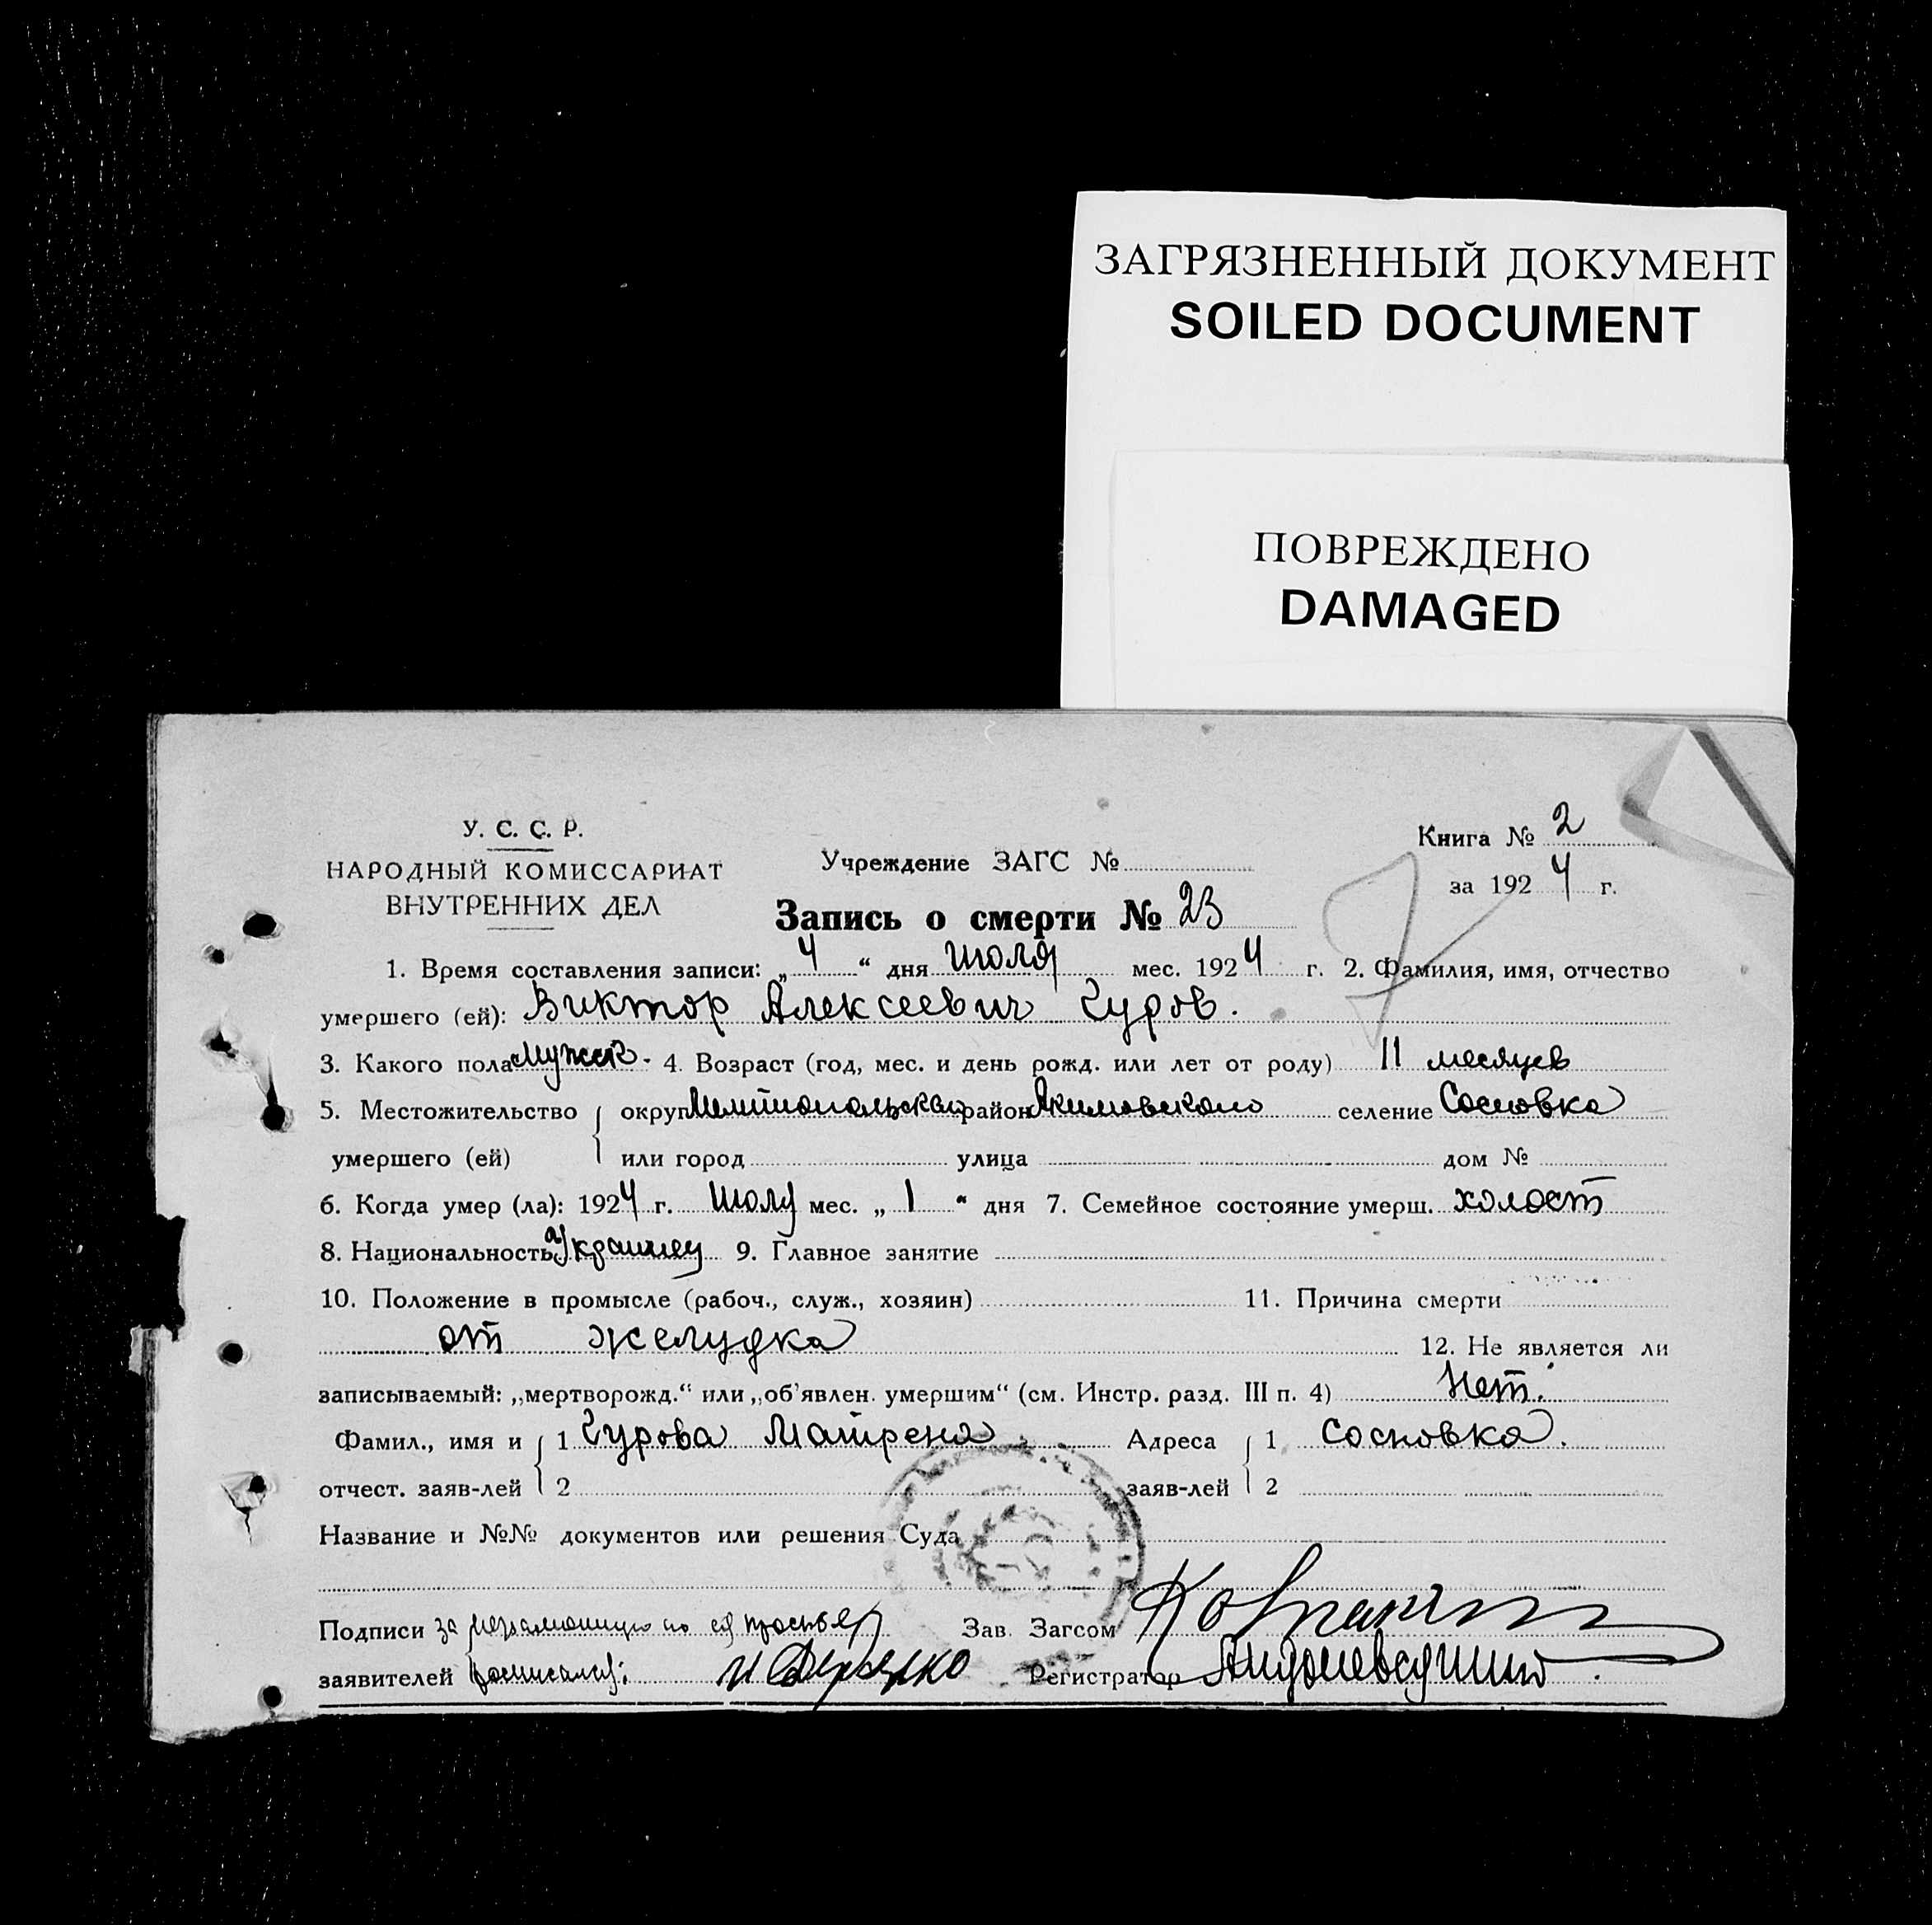 ЗАГРЯЗНЕННЫЙ ДОКУМЕНТ
SOILED DOCUMENT
ПОВРЕЖДЕНО
DAMAGED
У. С. С. Р.
НАРОДНЫЙ КОМИССАРИАТ
ВНУТРЕННИХ ДЕЛ
Учреждение ЗАГС №
Книга № 2
за 1924 г.
Запись о смерти № 23
1. Время составления записи: „4“ дня июля мес. 1924 г. 2. Фамилия, имя, отчество
умершего (ей): Виктор Алексеевич Чуров.
3. Какого пола мужск. 4. Возраст (год, мес. и день рожд. или лет от роду) 11 месяцев
5. Местожительство округ район Акимовского селение Сосновка
умершего (ей) или город улица дом №
6. Когда умер (ла): 1924 г. мес. „1“ дня 7. Семейное состояние умерш. холост
8. Национальность Украинец 9. Главное занятие
10. Положение в промысле (рабоч., служ., хозяин) 11. Причина смерти
от желудка 12. Не является ли
записываемый: „мертворожд.“ или „об'явлен. умершим“ (см. Инстр. разд. III п. 4) Нет.
Фамил., имя и 1 Чурова Матрена Адреса 1 Сосновка.
отчест. заяв-лей 2 заяв-лей 2
Название и №№ документов или решения Суда
Подписи за по ея Зав. Загсом
заявителей Регистратор